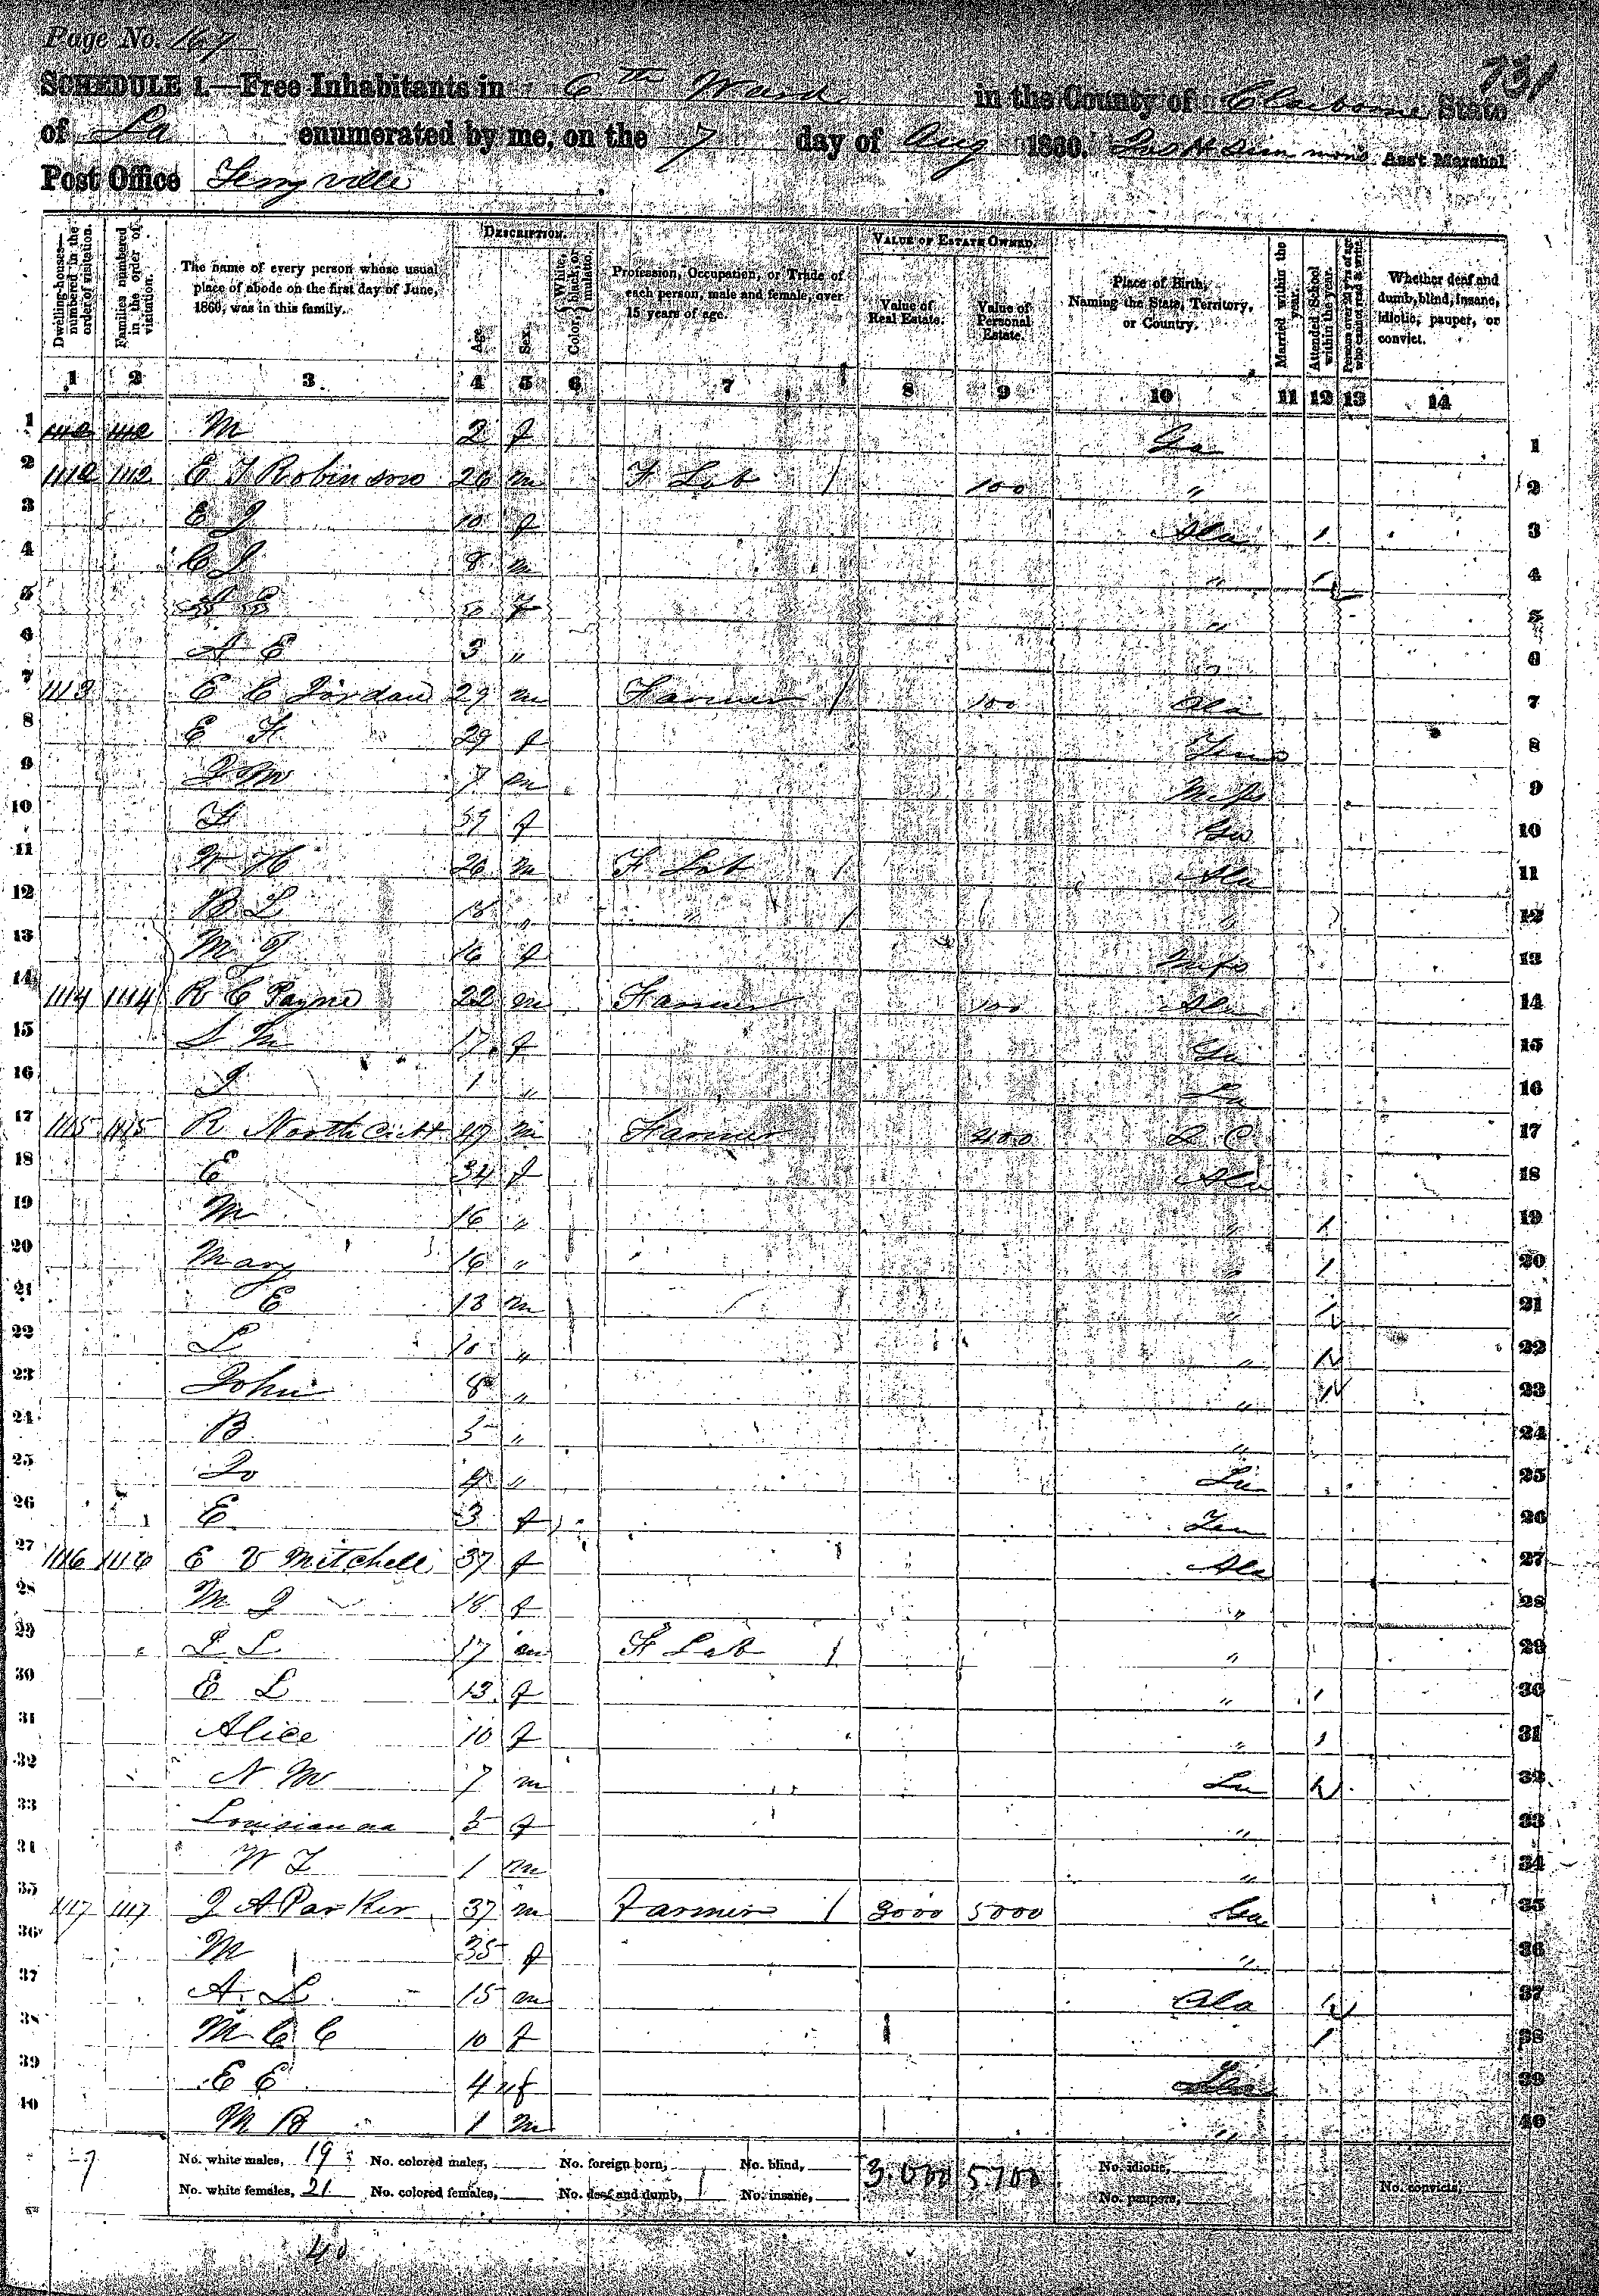 Page No. 167
731
SCHEDULE 1.—Free Inhabitants in 6th Ward in the County of Claiborne State
of La enumerated by me, on the 7 day of Aug 1860. Ass't Marshal
Post Office
Dwelling-houses—numbered in the order of visitation. Families numbered in the order of visitation. The name of every person whose usual place of abode on the first day of June, 1860, was in this family. DESCRIPTION. Age. Sex. Color, White, black, or mulatto. Profession, Occupation, or Trade of each person, male and female, over 15 years of age. VALUE OF ESTATE OWNED. Value of Real Estate. Value of Personal Estate. Place of Birth, Naming the State, Territory, or Country. Married within the year. Attended School within the year. Persons over 20 y'rs of age who cannot read & write. Whether deaf and dumb, blind, insane, idiotic, pauper, or convict.
1 2 3 4 5 6 7 8 9 10 11 12 13 14
1 M 2 f Ga 1
2 1112 1112 E J Robinson 26 m F Lab / 100 " 2
3 E J 10 f Ala 1 3
4 C J 8 m " 1 4
5 5 f " 5
6 A E 3 " " 6
7 1113 E C Jordan 29 m Farmer / 100 Ala 7
8 E F 29 f Tenn 8
9 J M 7 m Miss 9
10 F 59 f Geo 10
11 W H 26 m F Lab / Ala 11
12 B L 18 " " / " 12
13 M J 16 f Miss 13
14 1114 1114 R C Payne 22 m Farmer 100 Ala 14
15 S M 17 f Ga 15
16 J 1 " La 16
17 1115 1115 R Northcutt 49 m Farmer 400 S C 17
18 E 34 f Ala 18
19 M 16 " " 1 19
20 Mary 16 " " 1 20
21 E 13 m " 1 21
22 L 10 " " 1 22
23 John 8 " " 1 23
24 B 5 " " 24
25 Jo 4 " La 25
26 E 3 f 26
27 1116 1116 E V Mitchell 37 f Ala 27
28 M J 18 f " 28
29 L L 17 m F Lab / " 29
30 E L 13 f " 1 30
31 Alice 10 f " 1 31
32 N M 7 m La 1 32
33 Louisianna 5 f " 33
34 W T 1 m " 34
35 1117 1117 J A Parker 37 m Farmer / 3000 5000 Ga 35
36 M 35 f " 36
37 A L 15 m Ala 1 37
38 M C C 10 f 1 38
39 E E 4 f 39
40 M B 1 m " 40
No. white males, 19 No. colored males, No. foreign born, No. blind, 3.000 5700 No. idiotic,
No. white females, 21 No. colored females, No. deaf and dumb, No. insane, No. paupers, No. convicts,
40